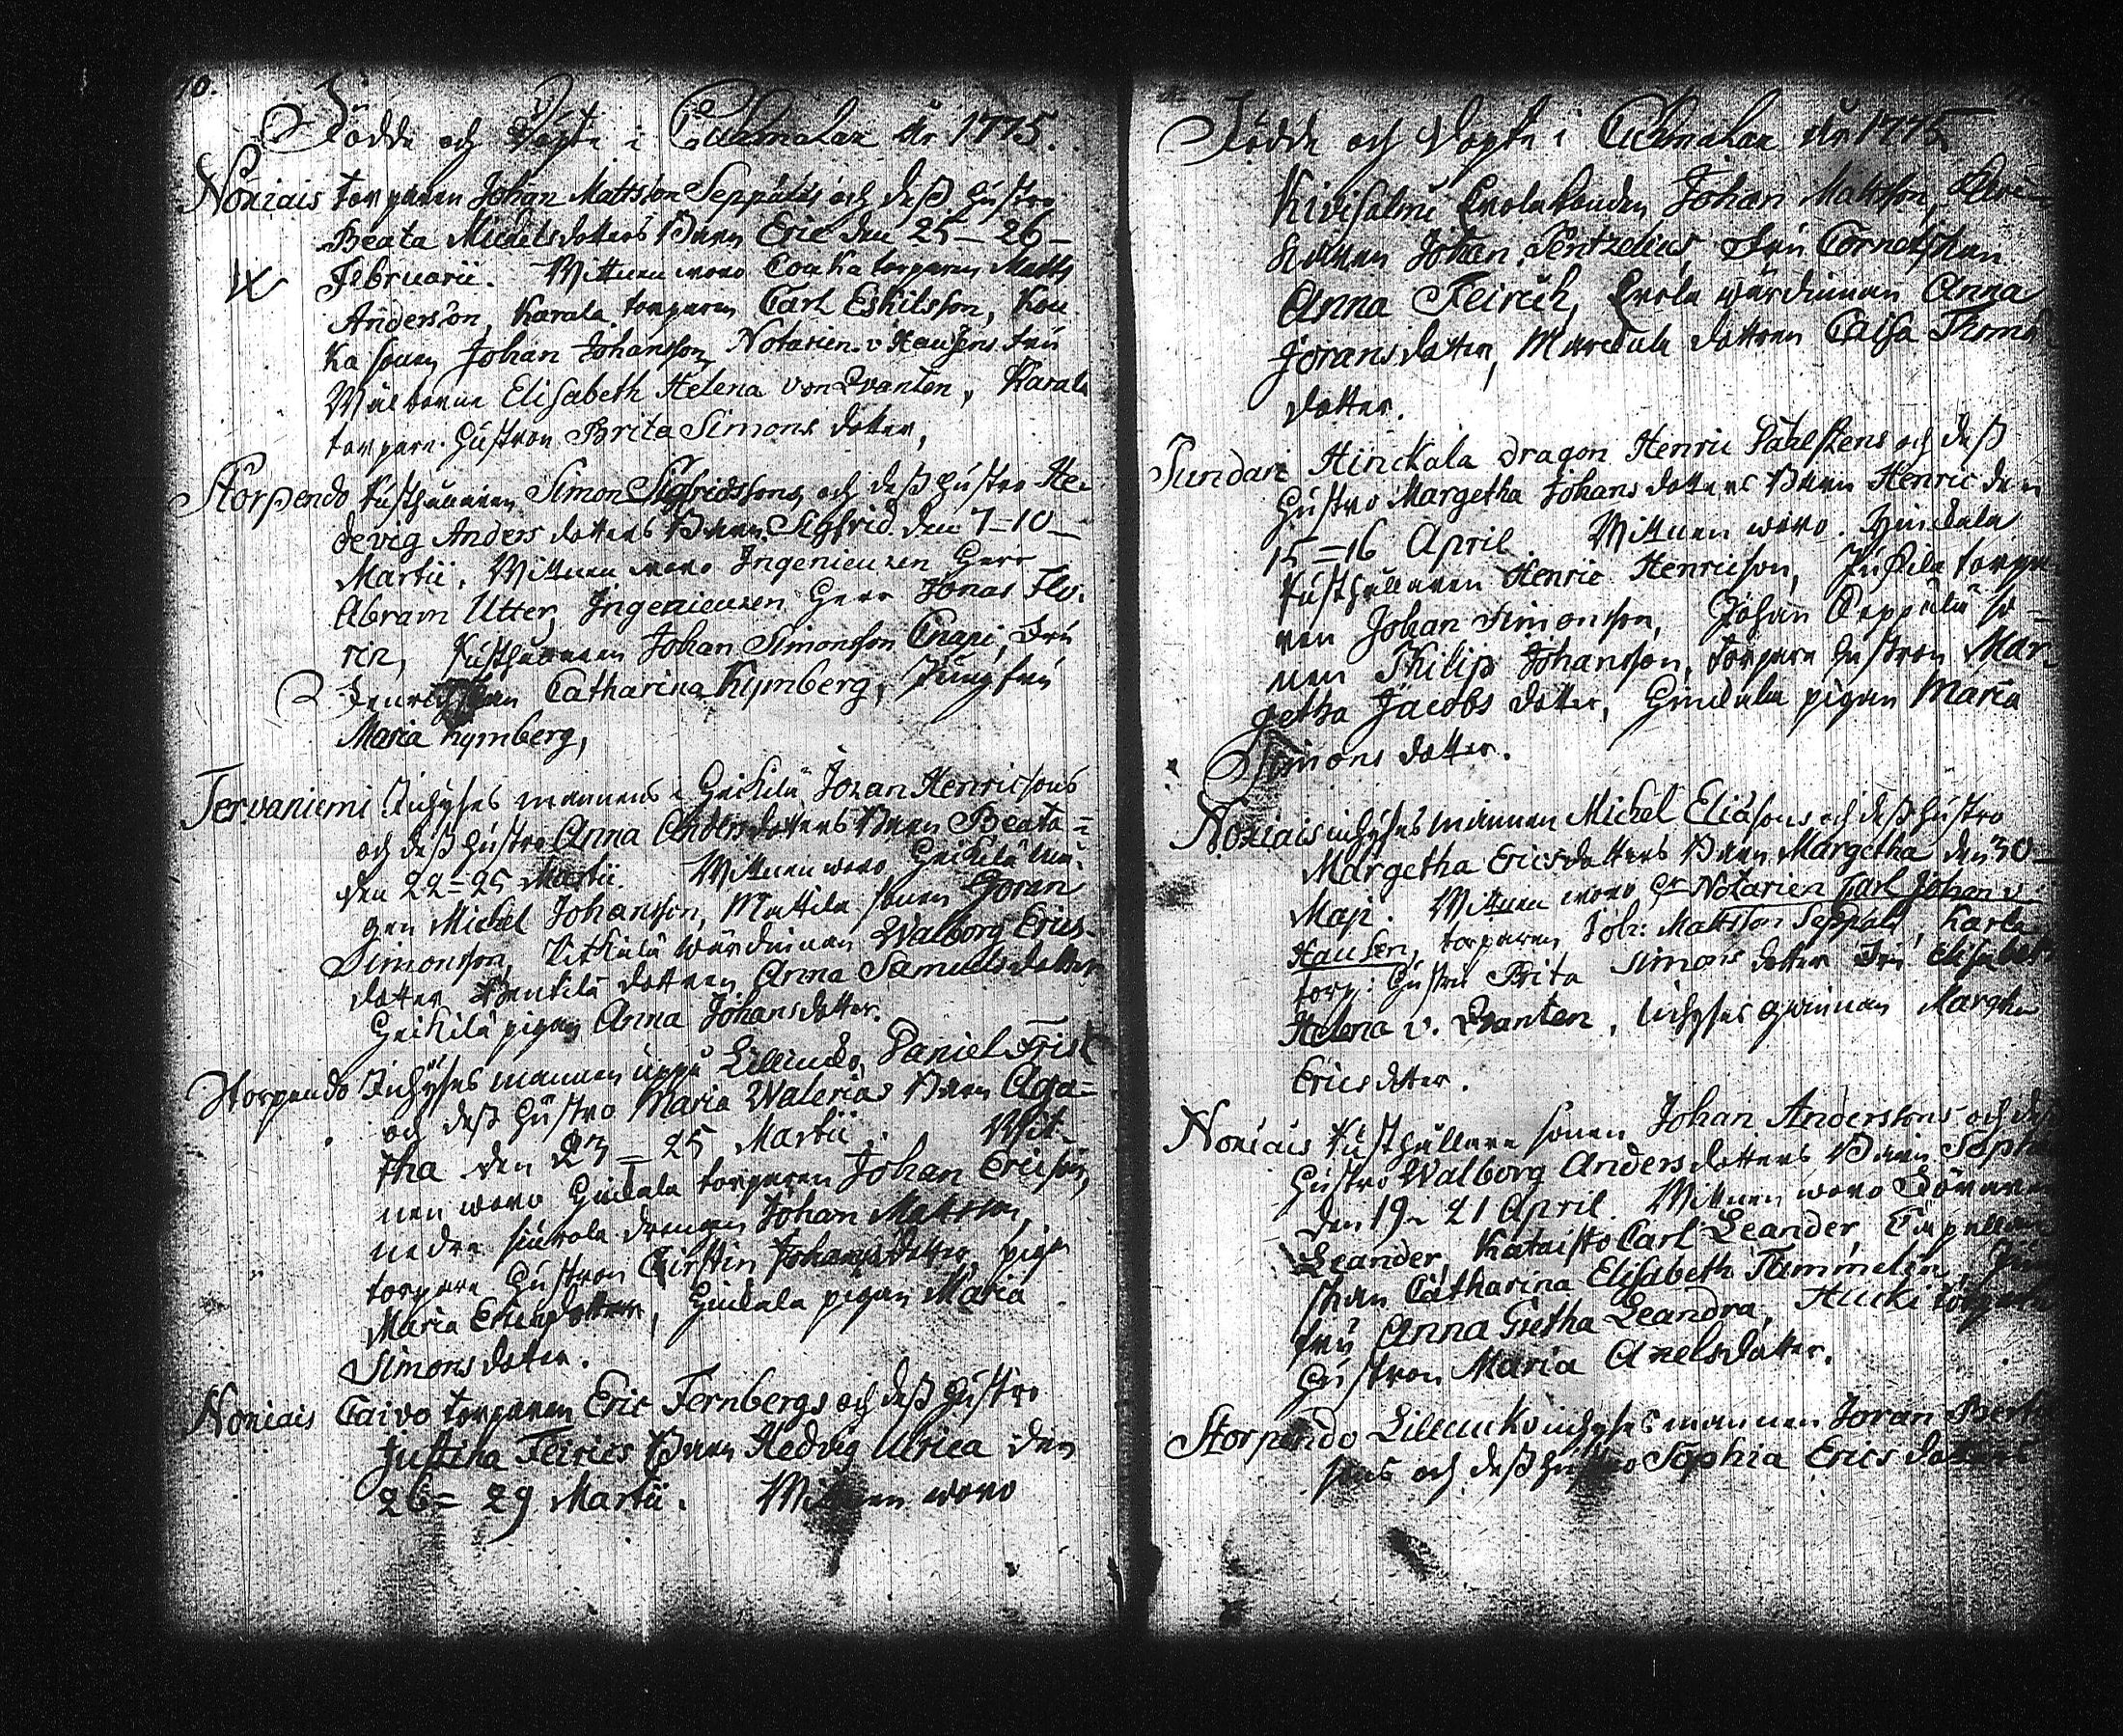 10.
Födde och Döpte i Culmalax År 1775.
Noriais torparen Johan Mattsson Seppäläs och deß hustro
Beata Michelsdotters Barn Eric den 25 - 26 -
Februarii. Wittnen woro Couka torparen Matts
Andersson, Karala torparen Carl Eskilsson, Kou-
ka sonen Johan Johansson, Notarien v Hausens fru
Wälborne Elisabeth Helena von Qvanten, Karala
torpare hustron Brita Simons dotter,
Storpendo Rusthållaren Simon Sigfridssons och deß hustro He-
devig Anders dotters Barn Sigfrid den 7 = 10 -
Martii. Wittnen woro Ingenieuren Herr
Abram Utter, Ingenieuren Herr Jonas Flo-
rin, Rusthållaren Johan Simonsson Cnapi, Fru
Catharina Kymberg, Jungfru
Maria Kymberg,
Tervaniemi Inhyses mannens i Heikilä Johan Henricssons
och deß hustro Anna Andersdotters Barn Beata =
den 22 = 25 Martii. Wittnen woro Heikilä
gen Michel Johansson, Mattila sonen Joran
Simonsson, wärdinnan Walborg Erics-
dotter dottren Anna Samuelsdotter
Heikilä pigan Anna Johansdotter.
Storpendo Inhyses mannen uppå Lilleucko, Daniel Frisk
och deß hustro Maria Walerias Barn Aga=
tha den 23 = 25 Martii. Wit-
nen woro torparen Johan Ericsson,
nedre drengen Johan Mattsson,
torpare hustron Cirstin Johansdotter, pigan
Maria Ericsdotter, pigan Maria
Simonsdotter.
Noriais Caivo torparen Eric Fernbergs och deß hustro
Justina Feirics Barn Hedvig Ulrica den
26 = 29 Martii. Wittnen woro
Födde och Döpte i Culmalax År 1775
Kivisalmi Johan Mattsson,
Johan Pentzelius, Fru Cornetskan
Anna Feirich, wärdinnan Anna
Joransdotter, dottren Caisa Thoms
dotter.
Sundari Hinckala Dragon Henric Påhlstens och deß
hustro Margetha Johansdotters Barn Henric den
15 = 16 April. Wittnen woro Hinckala
Rusthållaren Henric Henricsson, torpa-
ren Johan Simonsson, Johan Seppälä so-
nen Philip Johansson, torpare hustron Mar-
getha Jacobs dotter, pigan Maria
Simons dotter.
Noriais inhyses mannen Michel Eliæsons och deß hustro
Margetha Ericsdotters Barn Margetha den 30 -
Maji. Wittnen woro Hr Notarien Carl Johan v
Hausen, torparen Joh: Mattsson Seppälä, Karla
torp: hustro Brita Simons dotter Fru Elisabet
Helena v. Qvanten, inhyses qvinnan Margetha
Ericsdotter.
Noriais Rusthållare sonen Johan Anderssons och deß
hustro Walborg Anders dotters Barn Sophia
den 19 = 21 April. Wittnen woro
Leander, Kataisto Carl Leander, Capellan
skan Catharina Elisabeth Tammelin, Jung
fru Anna Gretha Leandra, Hucki torpare
hustron Maria Axelsdotter.
Storpendo Lilleucko inhyses mannen Joran Bert
sons och deß hustro Sophia Erics dotters